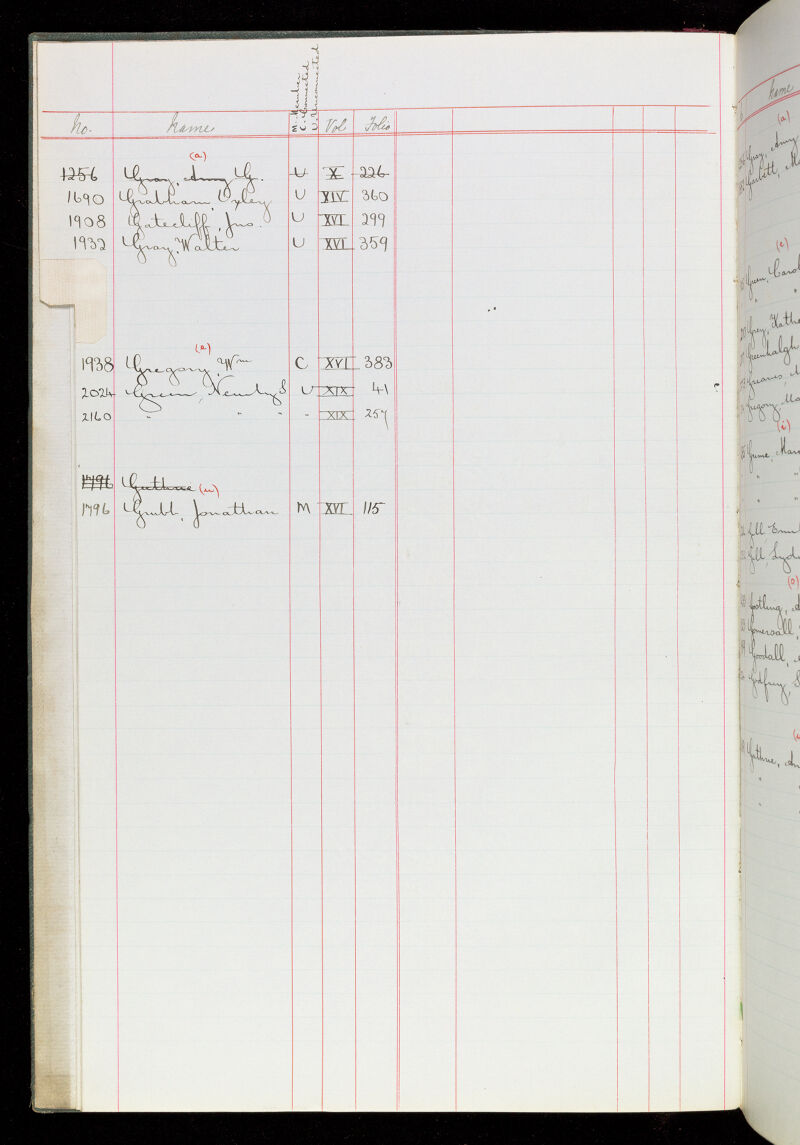 M. Member
C. Connected
U. Unconnected
No. Name Vol Folio
(a)
1256 Gray, Amy G. U X 226
1690 Grabham, Oxley U XIV 360
1908 Gatecliff, Jno. U XVI 299
1932 Gray, Walter U XVI 359
(e)
1938 Gregory, Wm C XVI 383
2024 Green, Newby S U XIX 41
2160 " " " " XIX 257
1796 Guthrie (u)
1796 Grubb, Jonathan M XVI 115
Name
(a)
Gray, Amy
Garbitt, M
(e)
Green, Carol
" "
Grey, Kathe
Greenhalgh
Greaves,
Gregory, Ma
(i)
Grime, Mar
" "
" "
Gill Emi
Gill, Lydi
(o)
Gostling,
Gomersall,
Goodall,
Godfrey, S
(u
Guthrie, An
" "
"